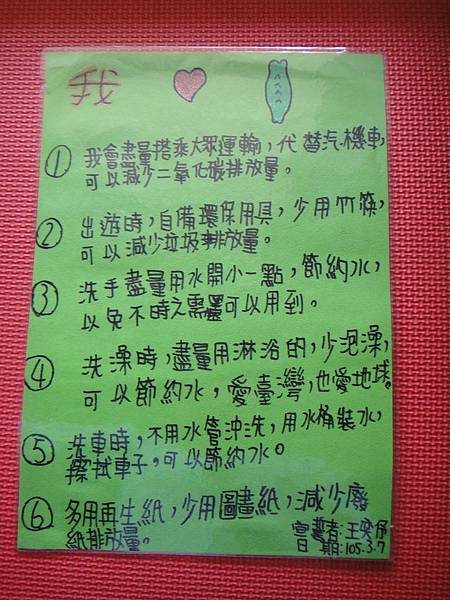 我
① 我會盡量搭乘大眾運輸，代替汽機車，
可以減少二氧化碳排放量。
② 出遊時，自備環保用具，少用竹筷，
可以減少垃圾排放量。
③ 洗手盡量用水開小一點，節約水，
以免不時之需還可以用到。
④ 洗澡時，盡量用淋浴的，少泡澡，
可以節約水，愛臺灣，也愛地球。
⑤ 洗車時，不用水管沖洗，用水桶裝水，
擦拭車子，可以節約水。
⑥ 多用再生紙，少用圖畫紙，減少廢
紙排放量。
宣誓者：王奕
日期：105.3.7